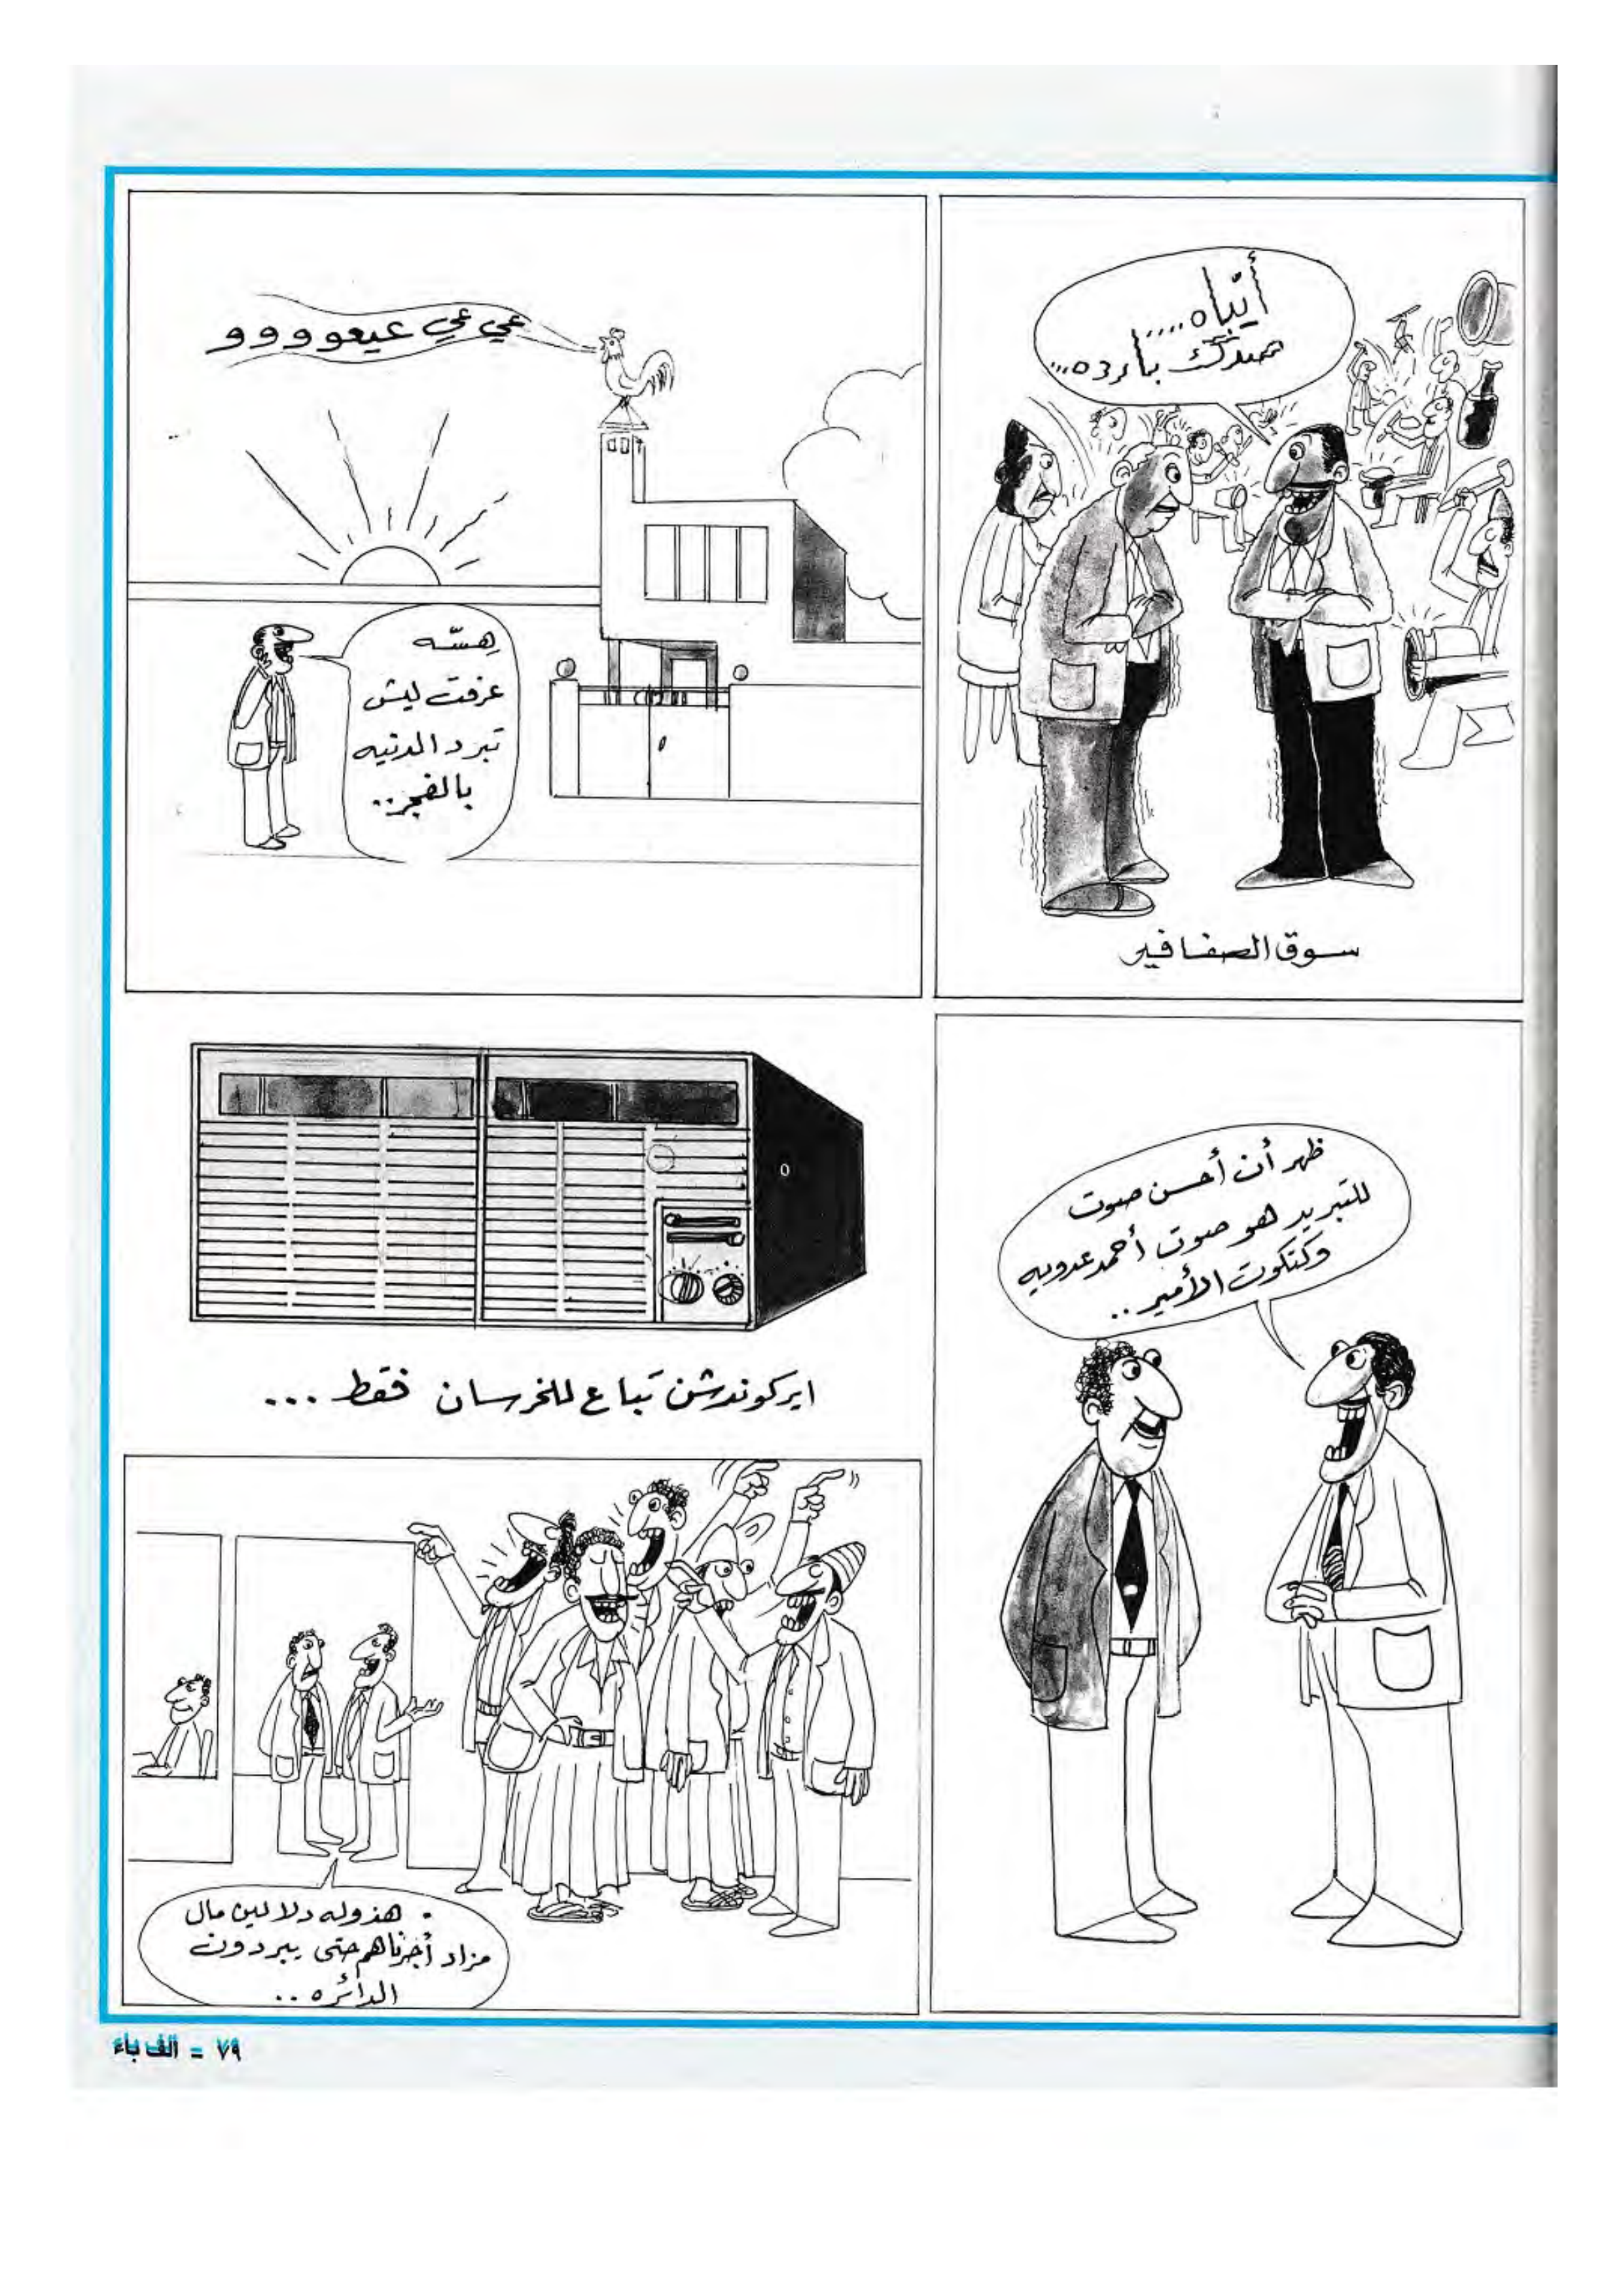 أيّباه.....!
صدك بارده...
سوق الصفافير
عي عي عيعووووو
هسّه
عرفت ليش
تبرد الدنيه
بالفجر..
ظهر أن أحسن صوت
للتبريد هو صوت أحمد عدويه
وكتكوت الأمير..
ايركوندشن تباع للخرسان فقط ...
هذوله دلالين مال
مزاد أجرناهم حتى يبردون
الدائره..
٧٩ - الف باء